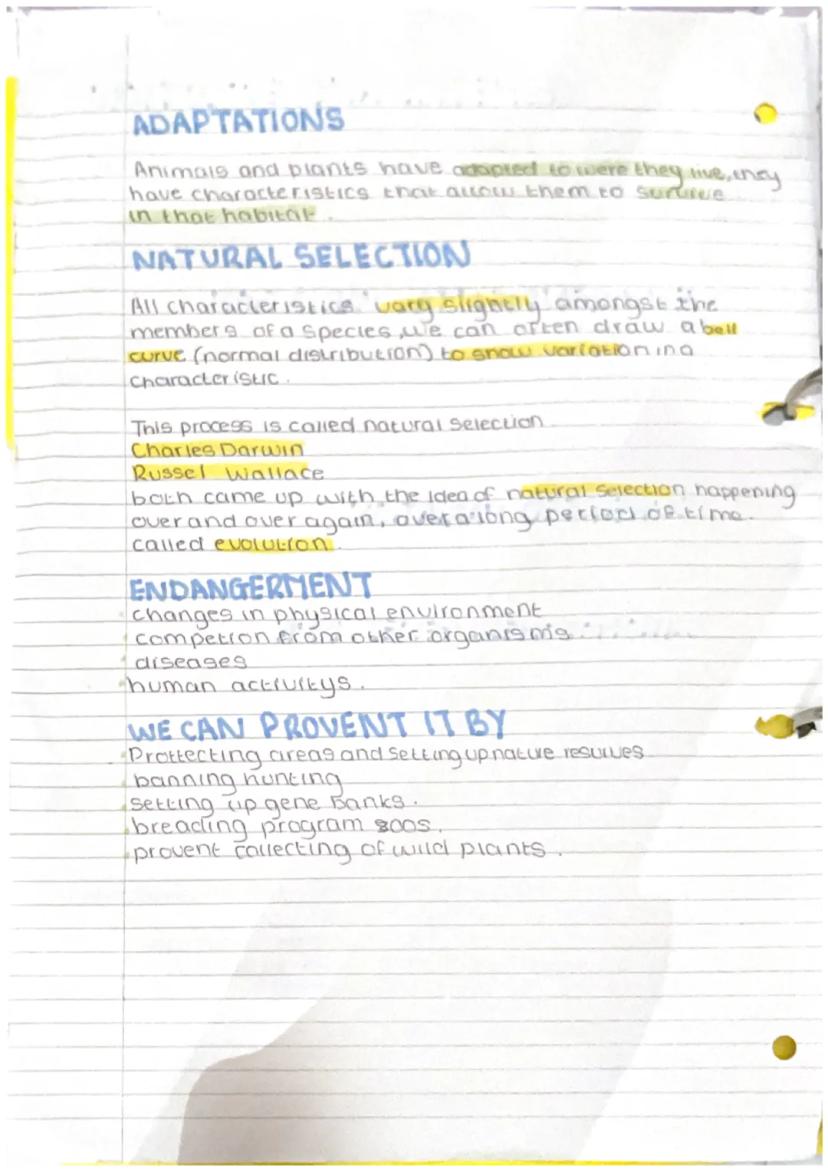 ADAPTATIONS
Animals and plants have adapted to were they live, they
have characteristics that allow them to survive
in that habitat.
NATURAL SELECTION
All characteristics vary slightly amongst the
members of a species, we can often draw a bell
curve (normal distribution) to show variation in a
characteristic.
This process is called natural selection
Charles Darwin
Russel Wallace
both came up with the idea of natural selection happening
over and over again, over a long period of time.
called evolution.
ENDANGERMENT
changes in physical environment
competion from other organisms
diseases
human activitys.
WE CAN PROVENT IT BY
Prottecting areas and setting up nature resurves
banning hunting
setting up gene banks.
breading program zoos.
provent collecting of wild plants.